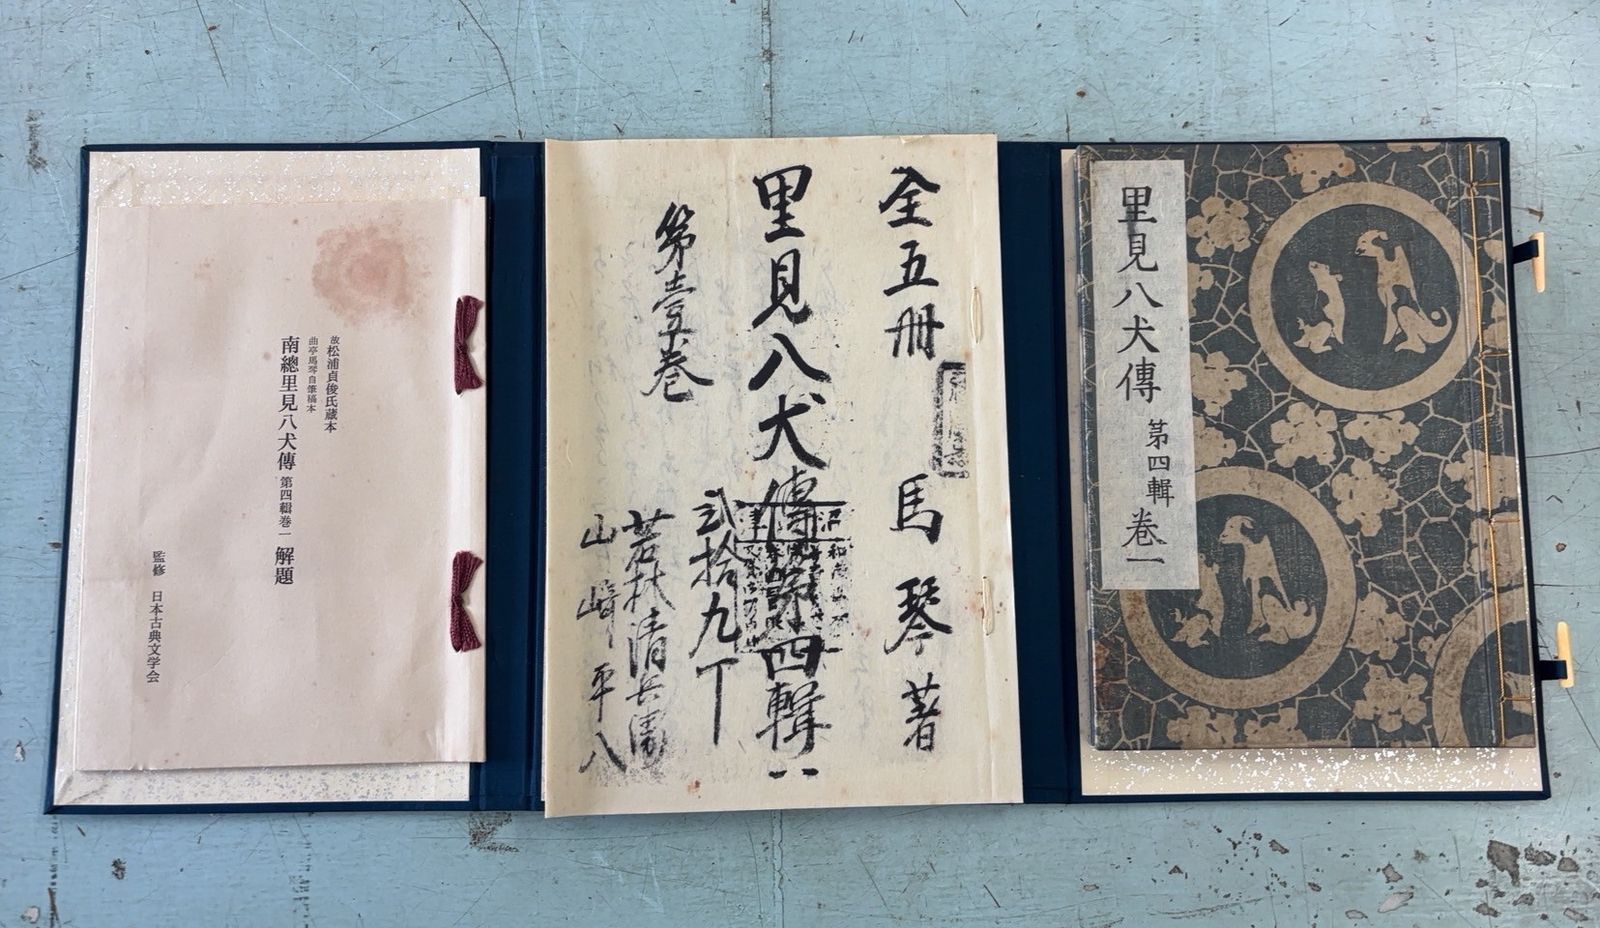 里見八犬傳 第四輯 卷一
全五冊 馬琴著
里見八犬傳第四輯
第壹卷
弐拾九丁
若林清兵衛
山崎平八
故松浦貞俊氏蔵本
曲亭馬琴自筆稿本
南總里見八犬傳 第四輯巻一 解題
監修 日本古典文学会